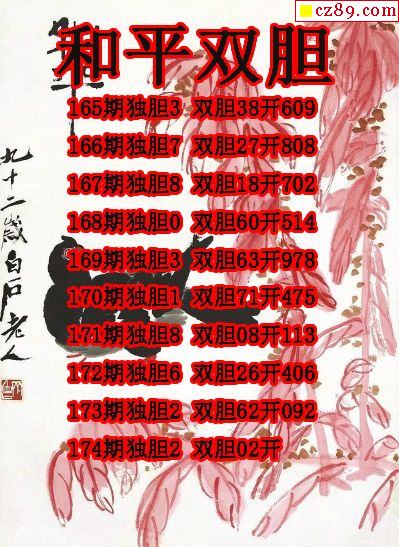 cz89.com
和平双胆
165期独胆3 双胆38开609
166期独胆7 双胆27开808
167期独胆8 双胆18开702
168期独胆0 双胆60开514
169期独胆3 双胆63开978
170期独胆1 双胆71开475
171期独胆8 双胆08开113
172期独胆6 双胆26开406
173期独胆2 双胆62开092
174期独胆2 双胆02开
九十二岁白石老人